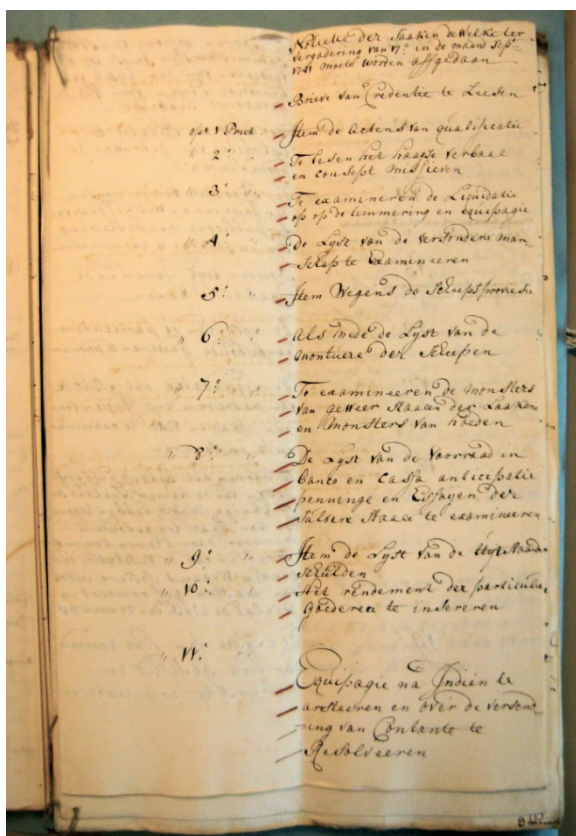 Notitie der Saaken dewelke ter
vergadering van 17e in de maand Sept
1741 moeten worden afgedaan
Brieve van Credentie te Leesen
opt 1 Item de Actens van qualificatie
" 2e " Te lesen het haagse verbaal
en Missieven
" 3e " Te examineren de Liquidatie
op de timmering en equipagie
" 4e " De Lyst van de versondene man
schap te Examineeren
" 5e " Item Wegens de Scheeps
" 6e " Als mede de Lyst van de
montuere der Scheepen
" 7e " Te examineeren de monsters
van geweer Staalen der Laaken
en monsters van hoeden
" 8e " De Lyst van de voorraad in
banco en Cassa anticipatie
penninge en der
Staaven te examineeren
" 9e " Item de Lyst van de
Schulden
" 10e " Het rendement der particuliere
goederen te insereren
" 11e "
Equipagie na Indien te
arresteeren en over de versend
ing van Contante te
Resolveeren